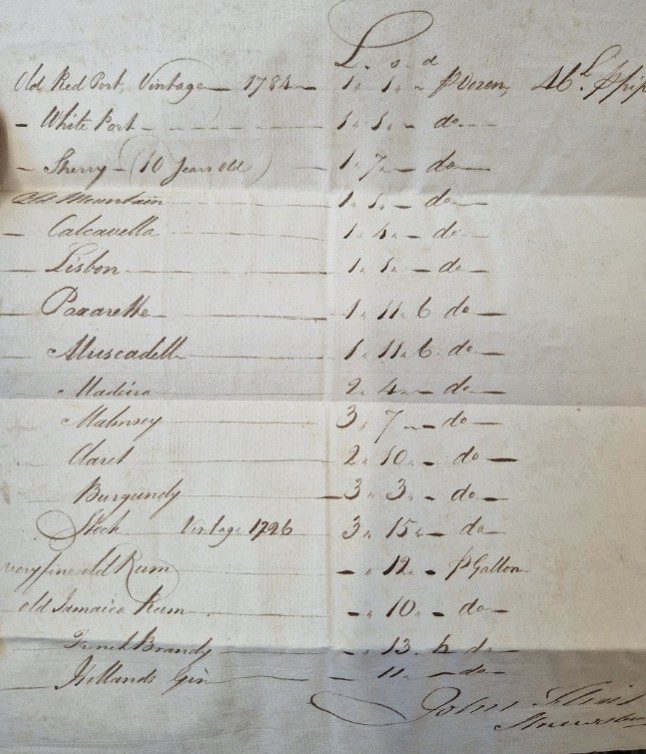 L. s. d
Old Red Port, Vintage 1784 1, 1, - p Dozen, 46£ p pip
- White Port - 1, 1, - do -
- Sherry - (10 Years Old) 1, 7, - do -
Old Mountain 1, 1, - do -
- Calcavella 1, 4, - do -
- Lisbon 1, 1, - do -
- Paxarette 1, 11, 6 do -
- Muscadell 1, 11, 6 do -
Madeira 2, 4, - do -
Malmsey 3, 7, - do -
Claret 2, 10, - do -
Burgundy 3, 3, - do -
Hock Vintage 1726 3, 15, - do
very fine old Rum - , 12, - p Gallon
old Jamaica Rum - , 10, - do -
French Brandy - , 13, 6 do -
- Hollands Gin - 11, - do -
John